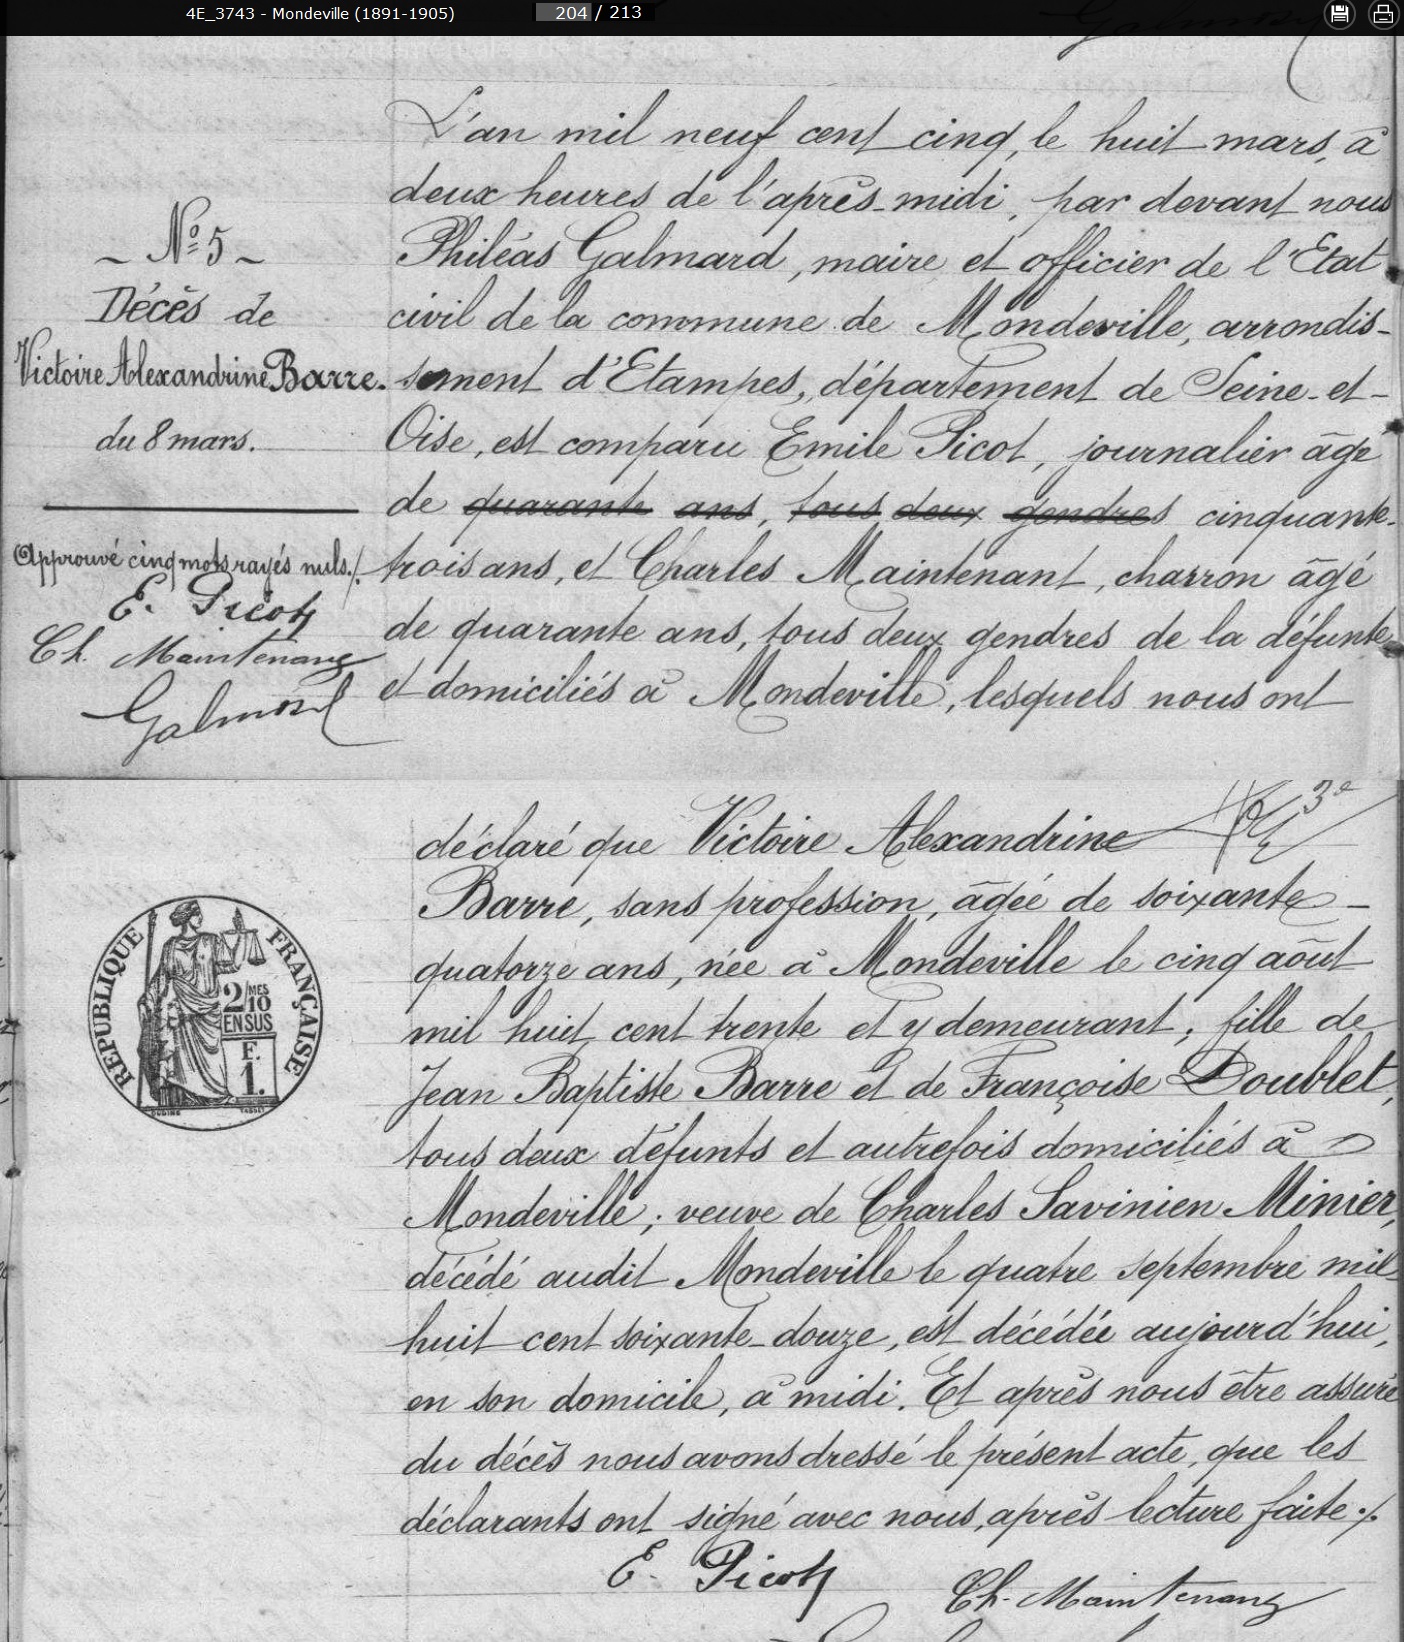 4E_3743 - Mondeville (1891-1905)
204 / 213
L'an mil neuf cent cinq, le huit mars, à
deux heures de l'après-midi, par devant nous
Philéas Galmard, maire et officier de l'Etat
civil de la commune de Mondeville, arrondis-
sement d'Etampes, département de Seine-et-
Oise, est comparu Emile Picot, journalier âgé
de quarante ans, tous deux gendres cinquante-
trois ans, et Charles Maintenant, charron âgé
de quarante ans, tous deux gendres de la défunte
et domiciliés à Mondeville, lesquels nous ont
~ N° 5 ~
Décès de
Victoire Alexandrine Barre.
du 8 mars.
Approuvé cinq mots rayés nuls./.
E. Picot
Ch. Maintenant
Galmard
3e
déclaré que Victoire Alexandrine
Barre, sans profession, âgée de soixante-
quatorze ans, née à Mondeville le cinq août
mil huit cent trente et y demeurant; fille de
Jean Baptiste Barre et de Françoise Doublet,
tous deux défunts et autrefois domiciliés à
Mondeville; veuve de Charles Savinien Minier,
décédé audit Mondeville le quatre septembre mil
huit cent soixante-douze, est décédée aujourd'hui,
en son domicile, à midi. Et après nous être assuré
du décès nous avons dressé le présent acte, que les
déclarants ont signé avec nous, après lecture faite ./.
E. Picot
Ch. Maintenant
REPUBLIQUE FRANÇAISE
2/10 MES
EN SUS
F.
1.